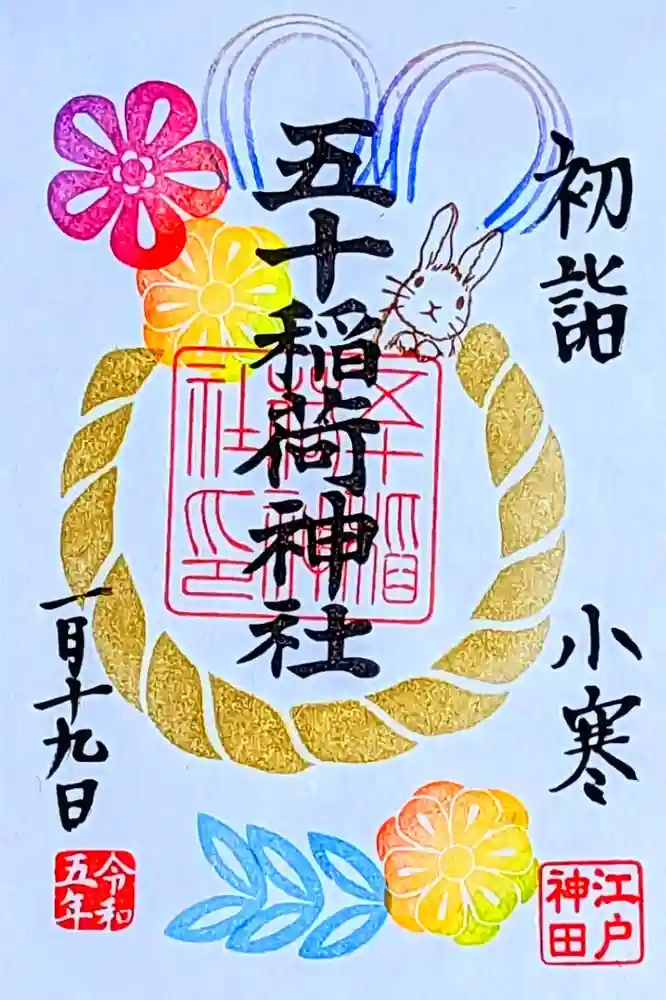 初詣
小寒
江戸
神田
五十稲荷神社
五十稲
荷神
社之印
一月十九日
令和
五年